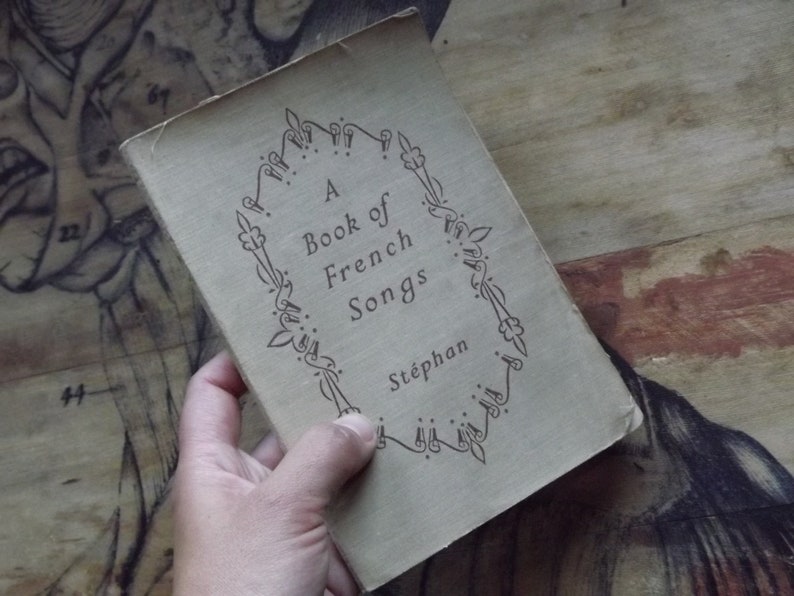 A
Book of
French
Songs
Stéphan
69
22
44